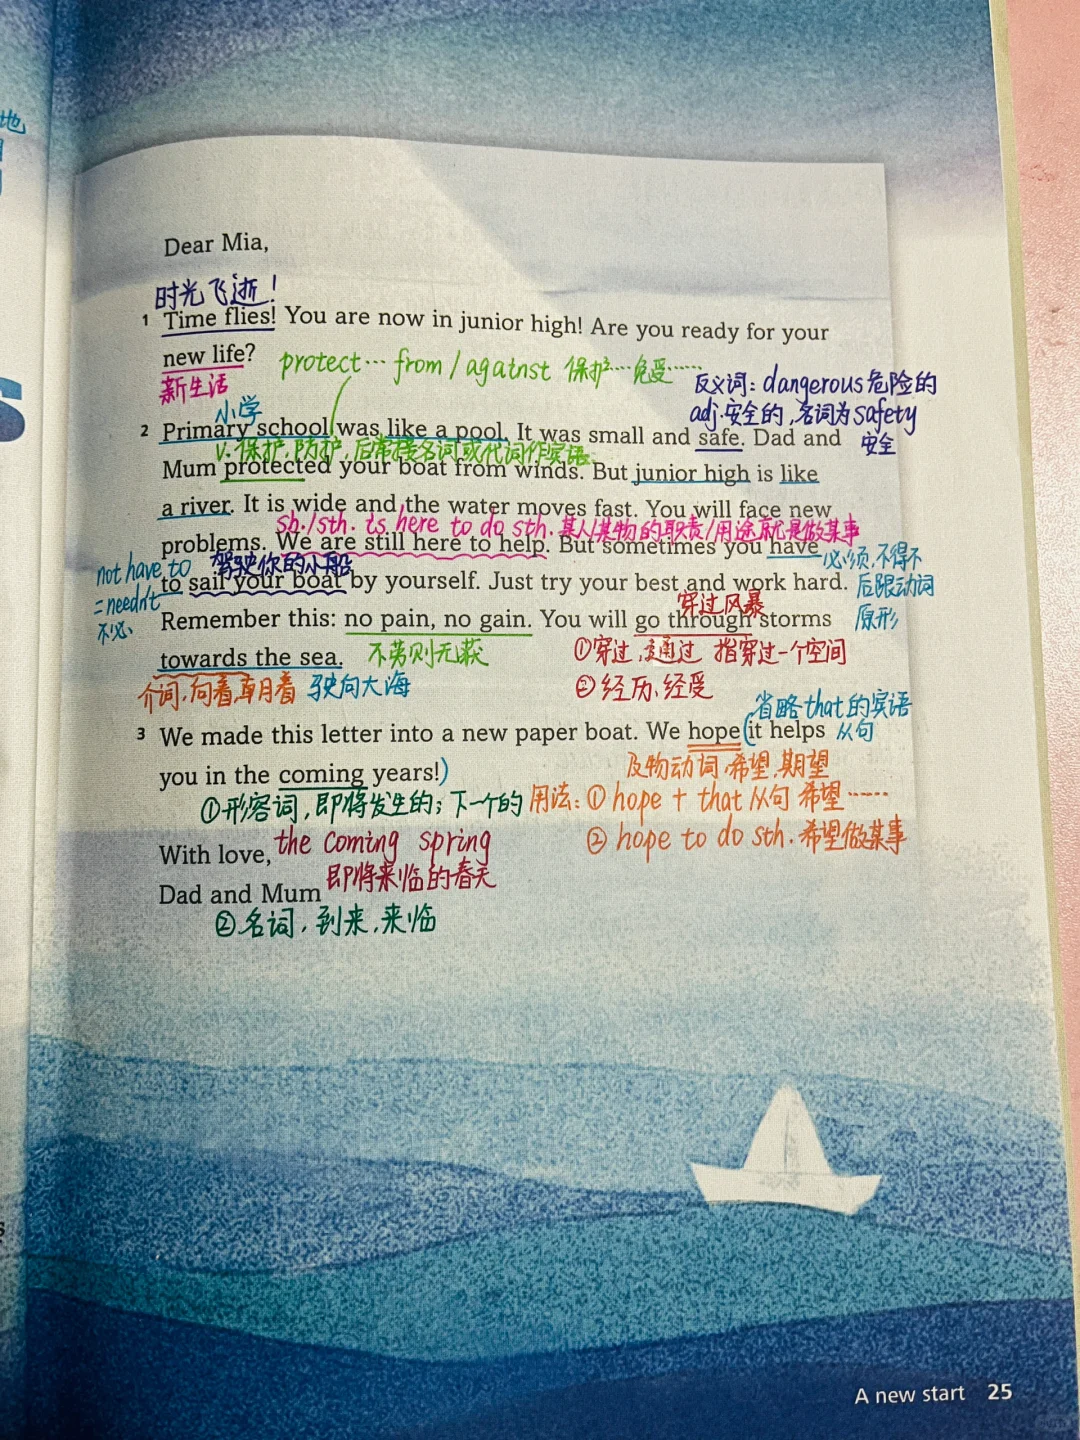 地
Dear Mia,
时光飞逝！
1 Time flies! You are now in junior high! Are you ready for your
new life?
新生活
protect… from / against 保护…免受……
反义词：dangerous危险的
adj.安全的，名词为safety
安全
小学
2 Primary school was like a pool. It was small and safe. Dad and
v.保护，防护，后常接名词或代词作宾语
Mum protected your boat from winds. But junior high is like
a river. It is wide and the water moves fast. You will face new
sb./sth. is here to do sth. 某人/某物的职责/用途就是做某事
problems. We are still here to help. But sometimes you have
必须，不得不
后跟动词
原形
not have to
= needn't
不必
驾驶你的小船
to sail your boat by yourself. Just try your best and work hard.
穿过风暴
Remember this: no pain, no gain. You will go through storms
不劳则无获
①穿过，通过 指穿过一个空间
②经历、经受
towards the sea.
介词，向着，朝着 驶向大海
省略that的宾语
从句
3 We made this letter into a new paper boat. We hope (it helps
及物动词，希望，期望
you in the coming years!)
①形容词，即将发生的；下一个的
用法：① hope + that 从句 希望……
② hope to do sth. 希望做某事
the coming spring
即将来临的春天
With love,
Dad and Mum
②名词，到来，来临
A new start 25